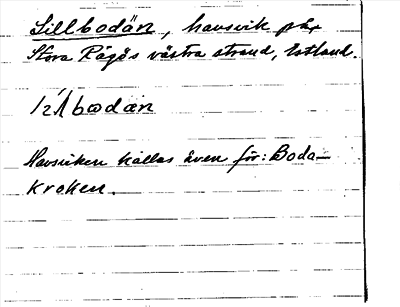 Lillbodän, havsvik på
Stora Rågös västra strand, Estland.
lilbodan
Havsviken kallas även för: Boda-
kroken.